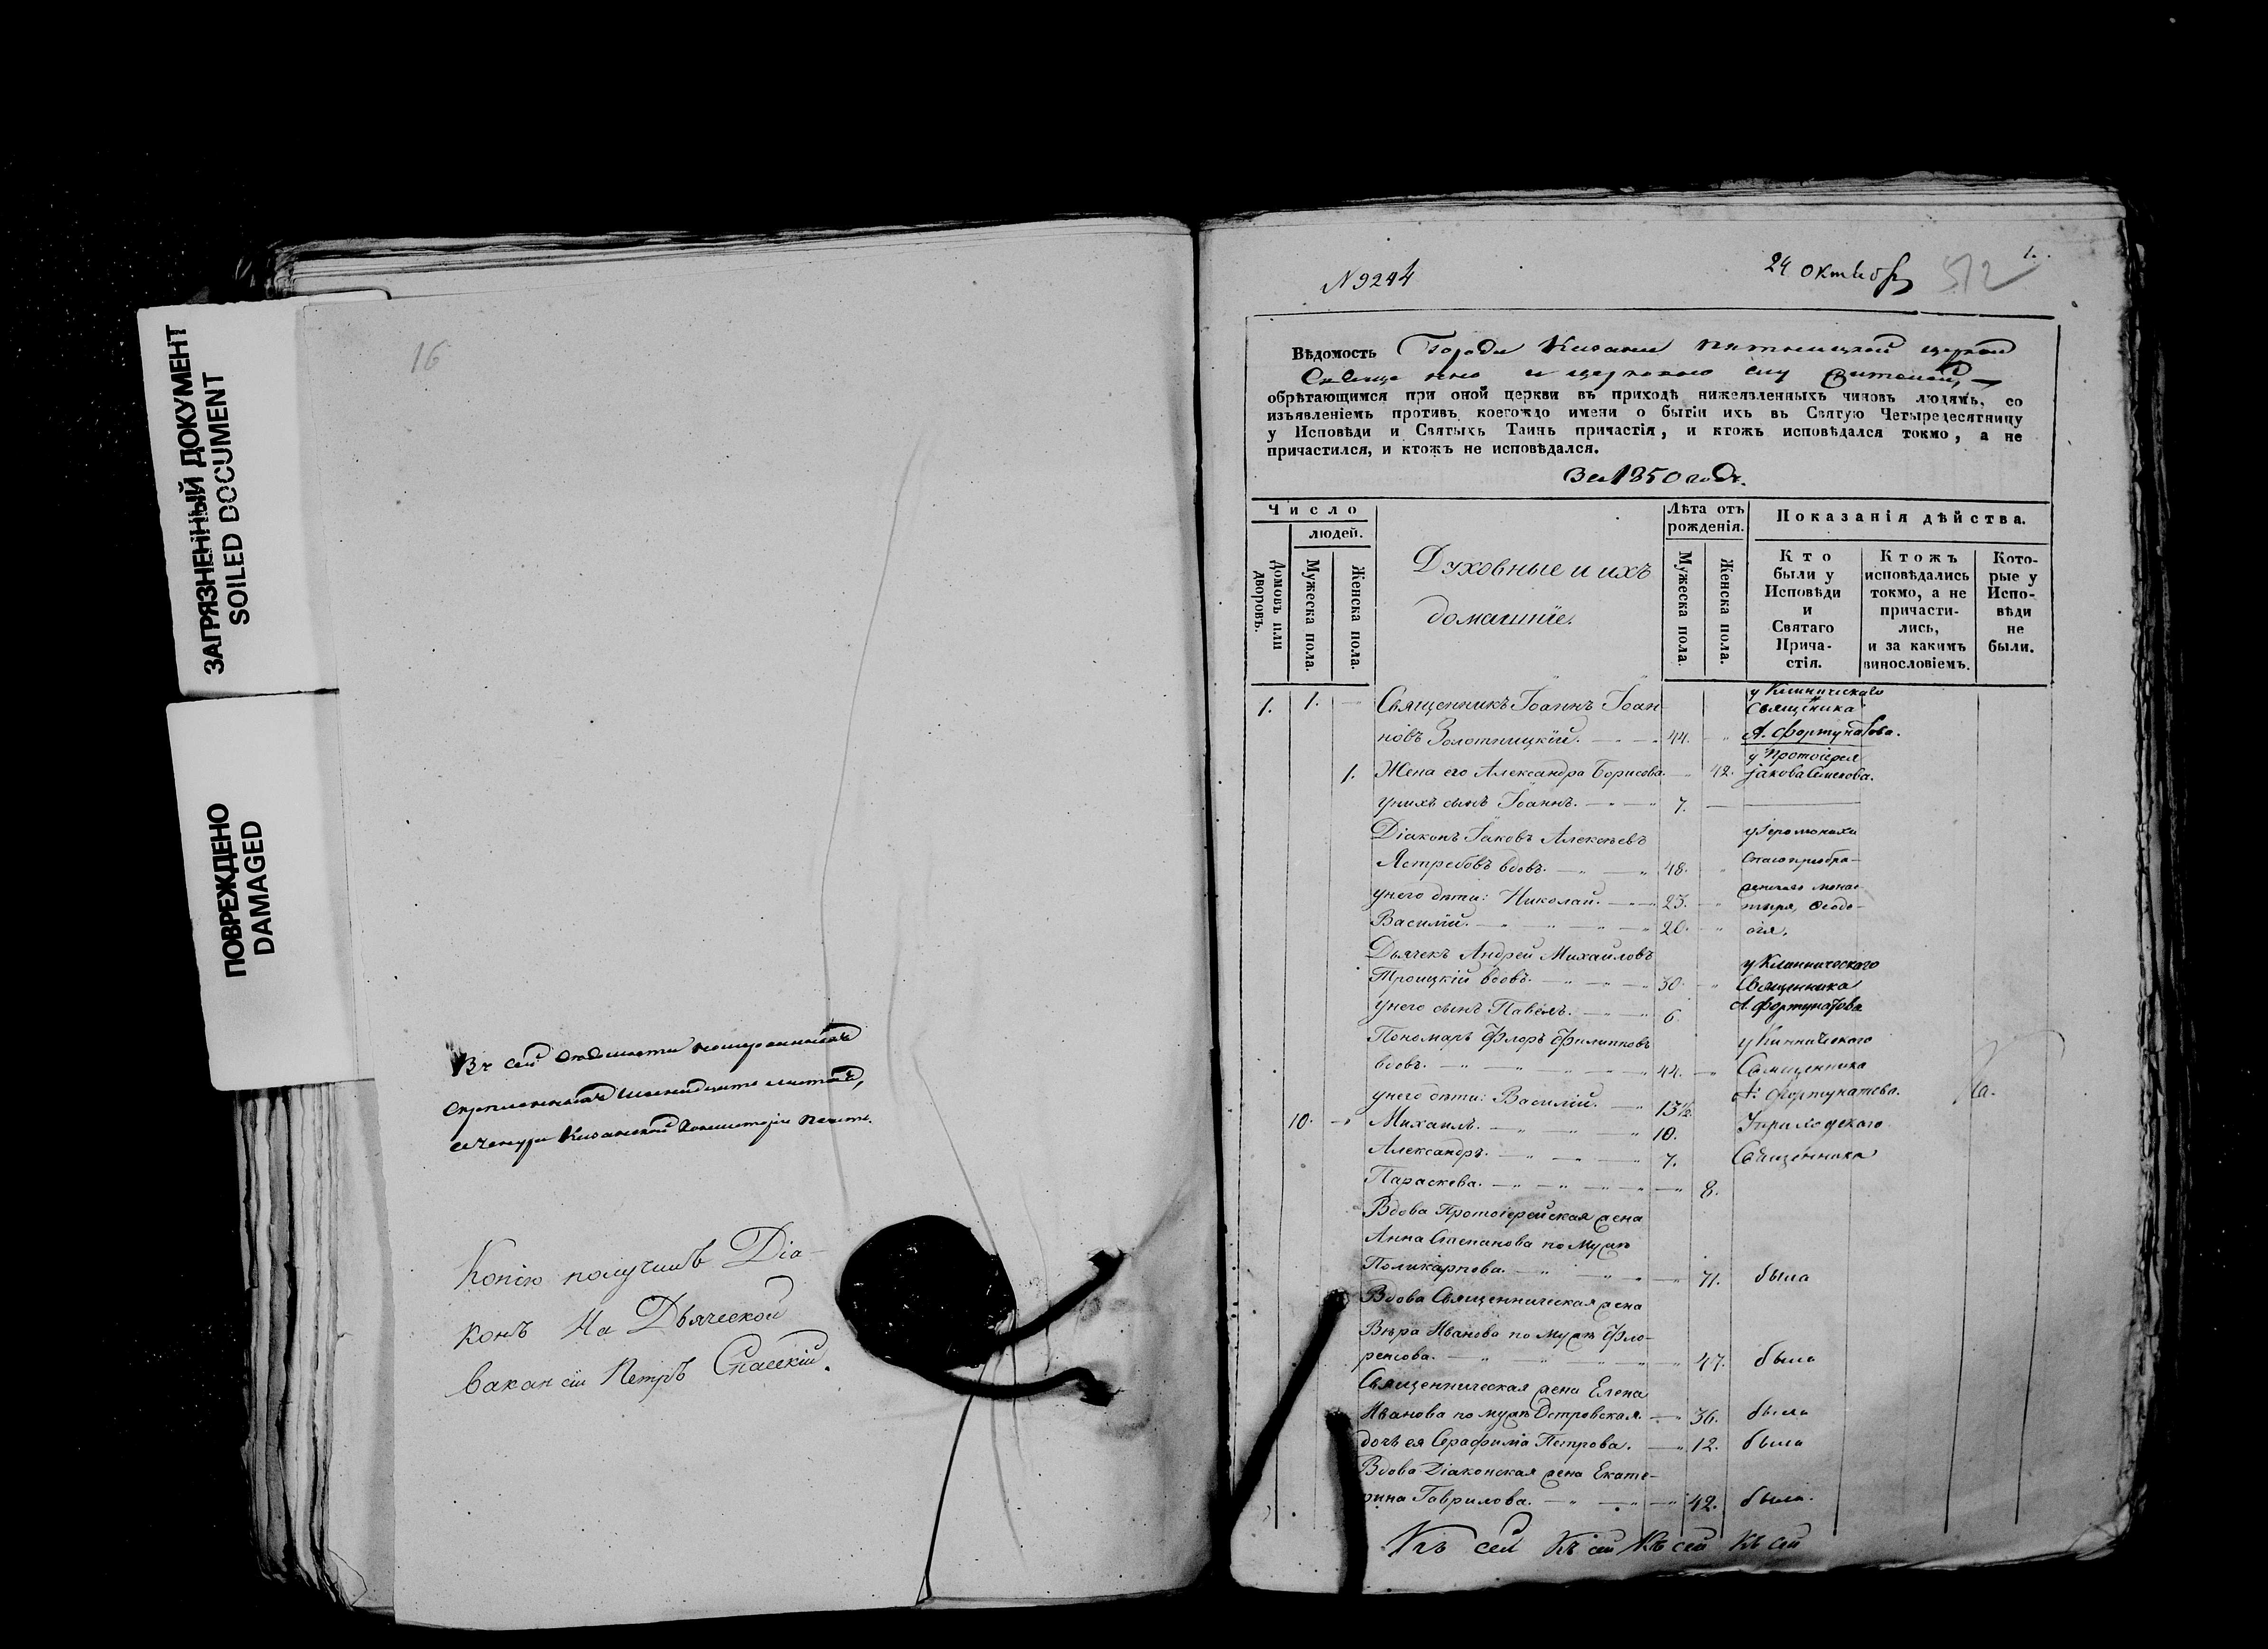 ЗАГРЯЗНЕННЫЙ ДОКУМЕНТ
SOILED DOCUMENT
ПОВРЕЖДЕНО
DAMAGED
16
Въ сей
листовъ,
Казанской Консисторіи печать.
Копію получилъ Діа-
конъ На Дьяческой
вакансіи Петръ Спасскій.
N 9244
24 октября
512
1.
Вѣдомость Города Казани Пятницкой церкви
обрѣтающимся при оной церкви въ приходѣ нижеявленныхъ чиновъ людямъ, со
изъявленіемъ противъ коегождо имени о бытіи ихъ въ Святую Четыредесятницу
у Исповѣди и Святыхъ Таинъ причастія, и ктожъ исповѣдался токмо, а не
причастился, и ктожъ не исповѣдался.
За 1850 годъ.
Число
людей.
Домовъ или дворовъ.
Мужеска пола.
Женска пола.
Духовные и ихъ
домашніе.
Лѣта отъ
рожденія.
Мужеска пола.
Женска пола.
Показанія дѣйства.
Кто
были у
Исповѣди
и
Святаго
Прича-
стія.
Ктожъ
исповѣдались
токмо, а не
причасти-
лись,
и за какимъ
винословіемъ.
Кото-
рые у
Испо-
вѣди
не
были.
1. 1. Священникъ Іоаннъ Іоан- у Клиническаго
Священика
новъ Золотницкій. 44. А. Фортунатова.
у Протоіерея
1. Жена его Александра Борисова. 42. Іакова Семенова.
у нихъ сынъ Іоаннъ. 7.
Діаконъ Іаковъ Алексѣевъ у Іеромонаха
Ястребовъ вдовъ. 48. Спасопреобра-
у него дѣти: Николай. 23. женскаго мона-
стыря,
Василій. 20.
Дьячекъ Андрей Михайловъ у Клиническаго
Троицкій вдовъ. 30. Священника
у него сынъ Павелъ. 6. А. Фортунатова
Пономарь Флоръ Филипповъ у Клиническаго
вдовъ. 44. Священника
у него дѣти: Василій. 13½. А. Фортунатова.
10. Михаилъ. 10. У приходскаго
Александръ. 7. Священника
Параскева. 8.
Вдова Протоіерейская жена
Анна Степанова по мужѣ
Поликарпова. 71. была
Вдова Священническая жена
Вѣра Иванова по мужѣ Фло-
ренсова. 47. была
Священническая жена Елена
Иванова по мужѣ Островская. 36. была
дочь ея Серафима Петрова. 12. была
Вдова Діаконская жена Екате-
рина Гаврилова. 42. была.
Къ сей Къ сей Къ сей Къ сей